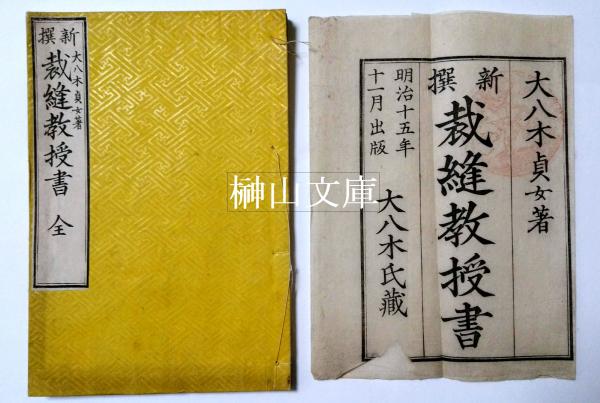 新撰
大八木貞女著
裁縫教授書 全
大八木貞女著
新撰
裁縫教授書
明治十五年
十一月出版
大八木氏藏
榊山文庫